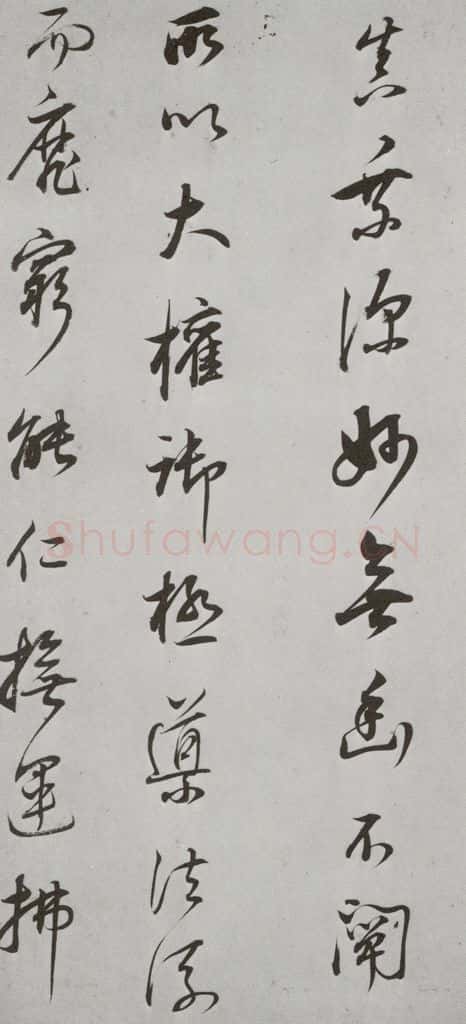 真乘深妙無幽不闡
所以大權御極導法流
而靡窮能仁撫運拂
Shufawang.CN